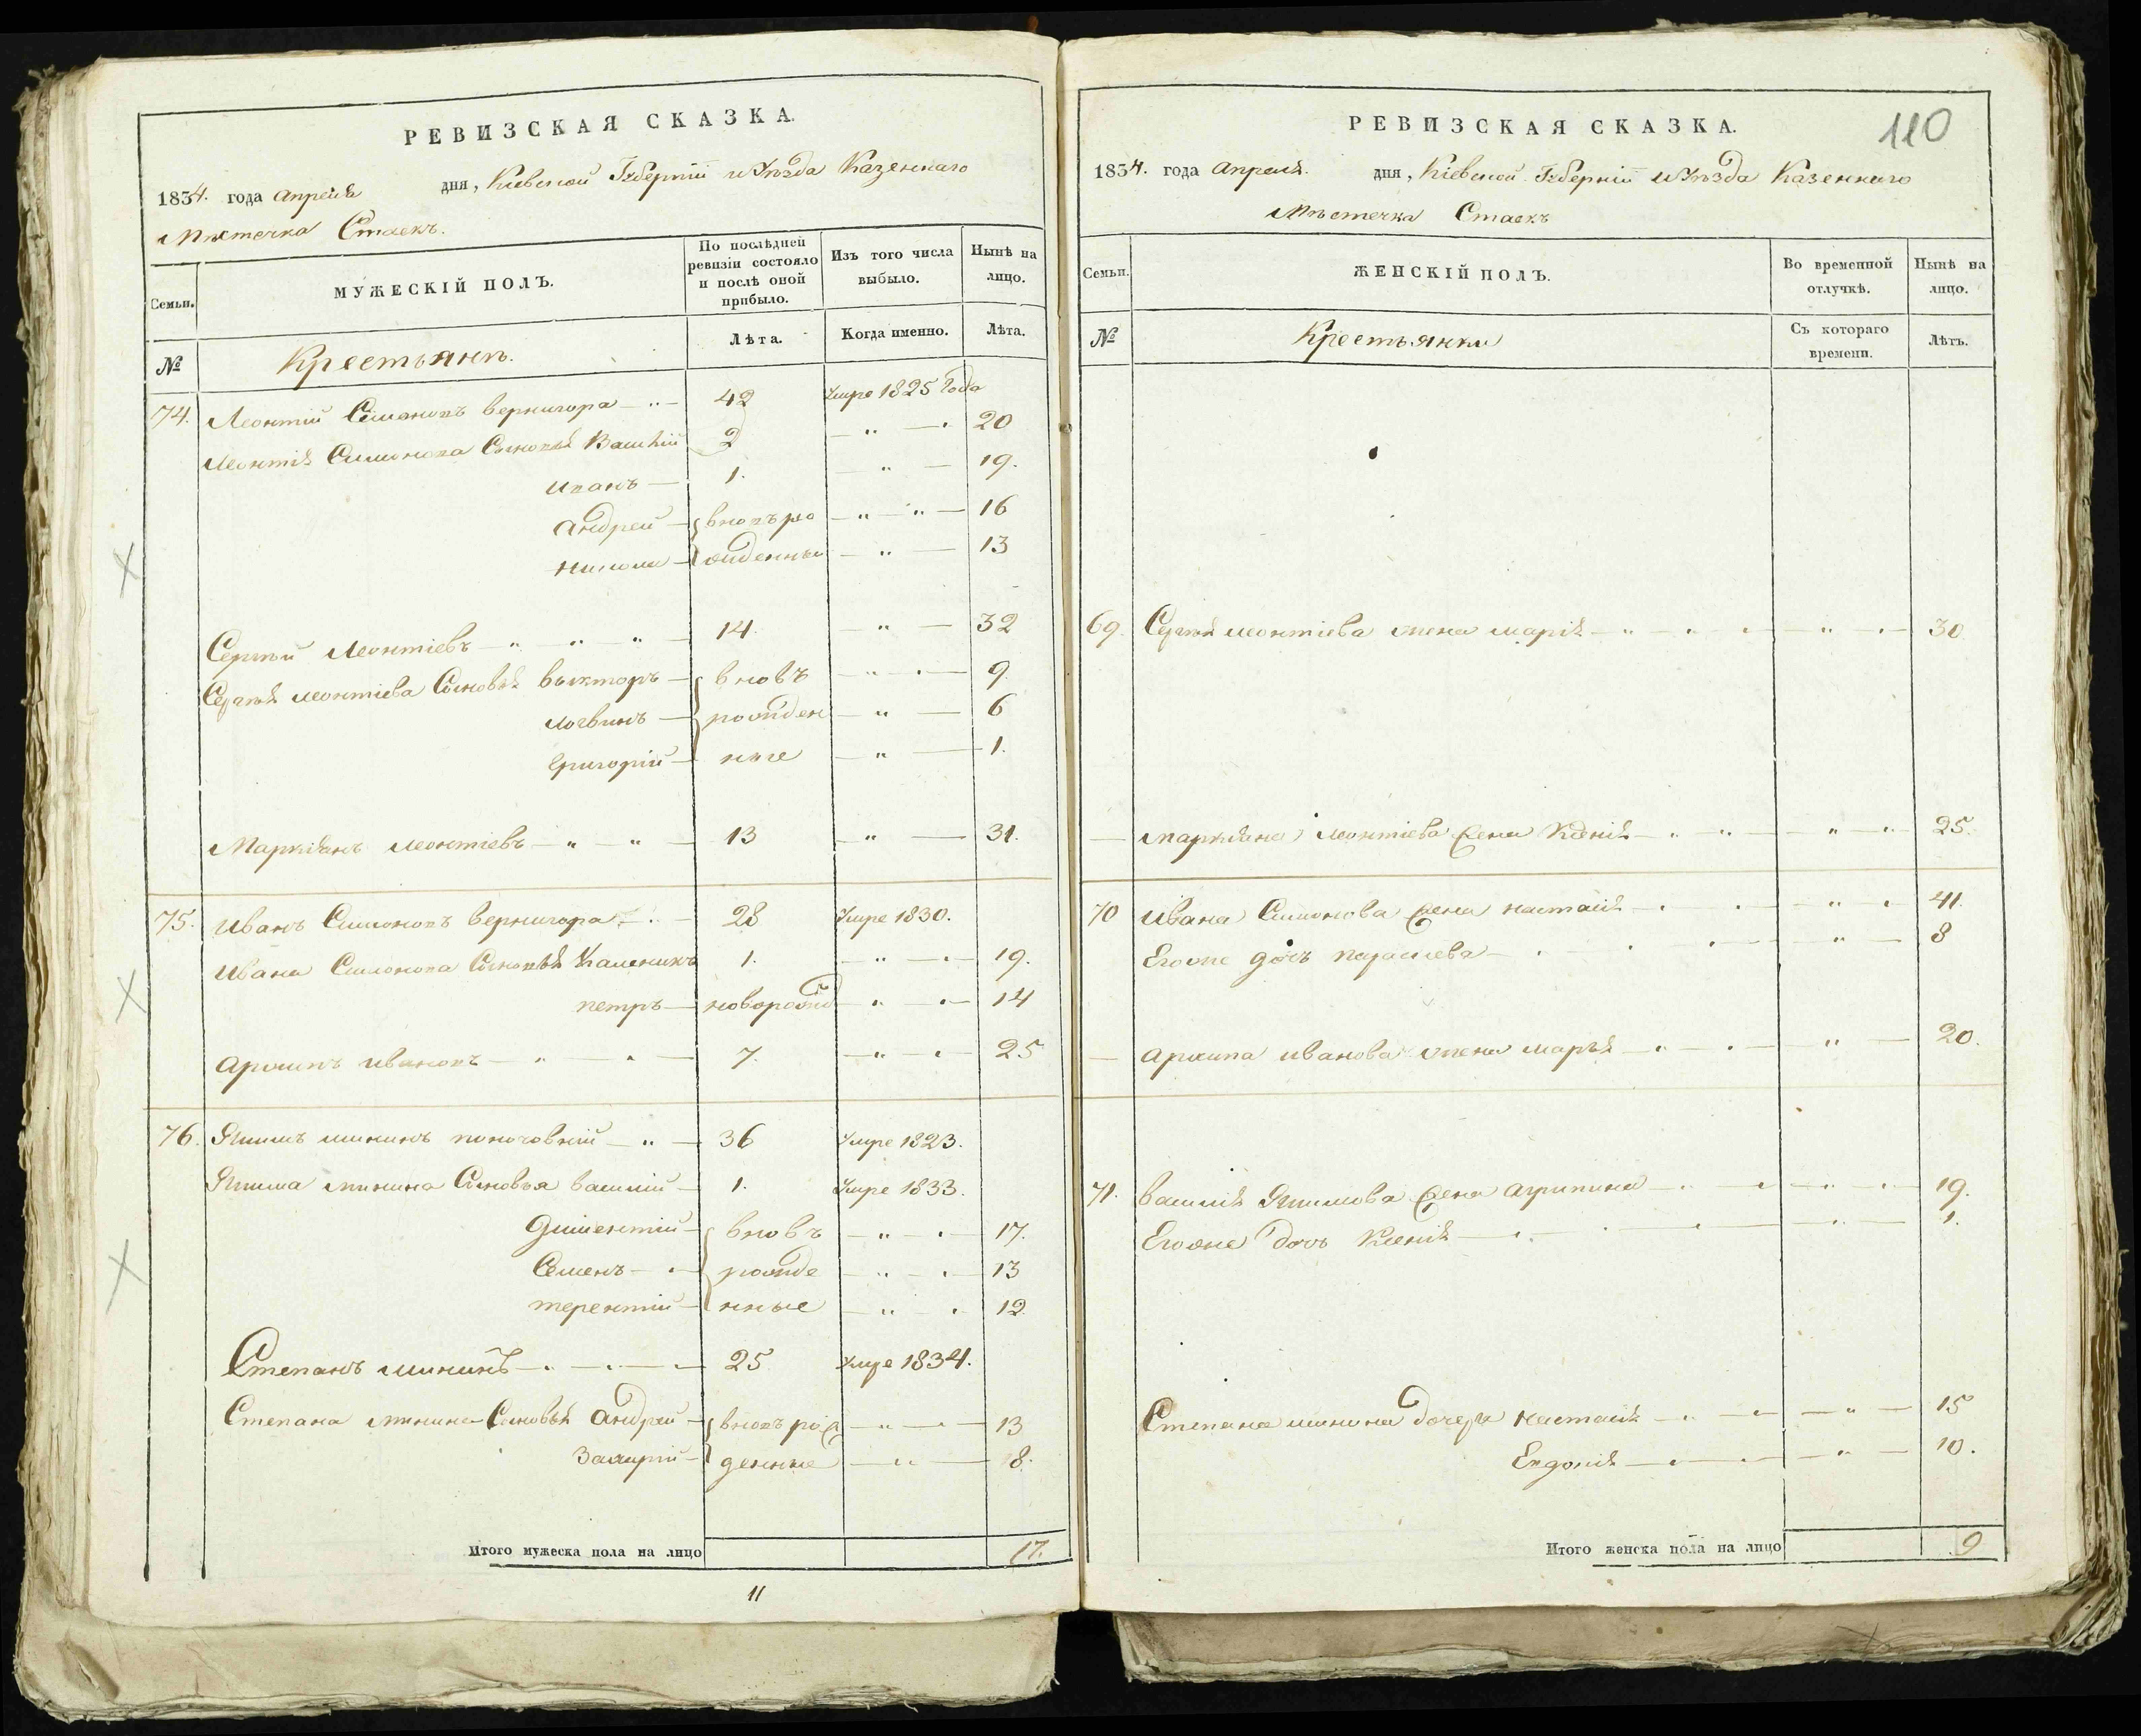 РЕВИЗСКАЯ СКАЗКА.
1834. года Апреля дня, Кіевской Губерніи и Уѣзда Казеннаго
Мѣстечка Стаекъ.
Семьи.
МУЖЕСКІЙ ПОЛЪ.
По послѣдней ревизіи состояло и послѣ оной прибыло.
Изъ того числа выбыло.
Нынѣ на лицо.
№
Крестьянъ.
Лѣта.
Когда именно.
Лѣта.
74. Леонтій Симоновъ Вернигора 42 Умре 1825 Года
Леонтія Симонова Сыновья Василій 2 — " — 20
Иванъ — 1. — " — 19.
Андрей — вновъ ро — " — " — 16
Никола — жденны — " — 13
Сергѣй Леонтіевъ — " — " — " — 14. — " — 32
Сергѣя Леонтіева Сыновья Выкторъ — вновъ — " — 9.
Логвинъ — рожден — " — 6
Григорій — ные — " — 1.
Маркіянъ Леонтіевъ — " — " — 13 — " — 31.
75. Иванъ Симоновъ Вернигора — 28 Умре 1830.
Ивана Симонова Сыновья Каленикъ 1. — " — 19.
Петръ — новорожд — " — 14
Архипъ Ивановъ — " — " — 7. — " — 25
76. Якимъ Мининъ — " — 36 Умре 1823.
Якима Минина Сыновья Василій — 1. Умре 1833.
Дишентій — вновъ — " — 17.
Семенъ — рожде — " — 13
Терентій — нные — " — 12.
Степанъ Мининъ — 25 Умре 1834.
Степана Минина Сыновья Андрей — вновъ рож — " — 13
Захарій — денные — " — 8.
Итого мужеска пола на лицо 17.
11
110
РЕВИЗСКАЯ СКАЗКА.
1834. года Апреля. дня, Кіевской Губерніи и Уѣзда Казеннаго
Мѣстечка Стаекъ
Семьи.
ЖЕНСКІЙ ПОЛЪ.
Во временной отлучкѣ.
Нынѣ на лицо.
№
Крестьянки
Съ котораго времени.
Лѣтъ.
69. Сергѣя Леонтіева жена Марія — " — " — 30
— Маркіяна Леонтіева жена Ксенія — " — " — 25.
70 Ивана Симонова жена Настасія — " — 41.
Егоже дочъ Параскева — " — 8
— Архипа Иванова жена Марья — " — 20.
71. Василія Якимова жена Агрипина — " — 19.
Егоже Дочъ Ксенія — " — 1.
Степана Минина Дочеря Настасія — " — 15
Евдокія — " — 10.
Итого женска пола на лицо 9